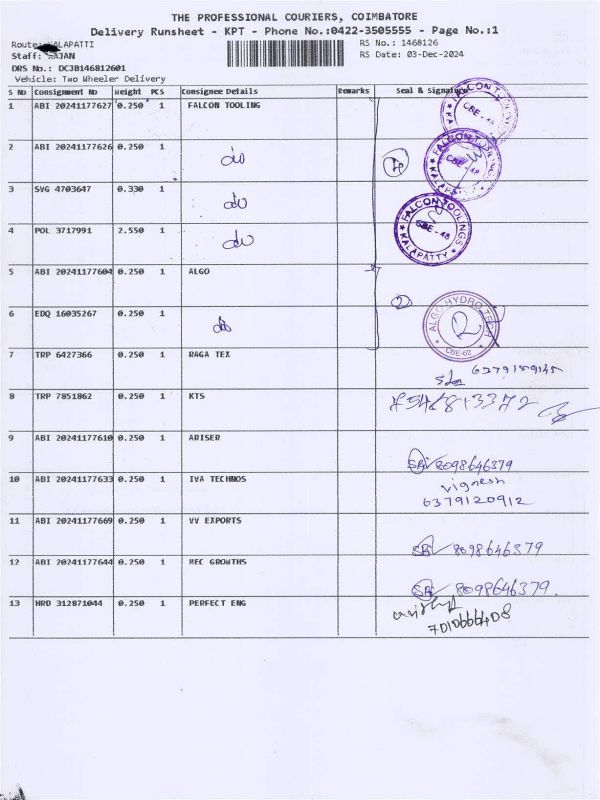 THE PROFESSIONAL COURIERS, COIMBATORE
Delivery Runsheet - KPT - Phone No.:0422-3505555 - Page No.:1
Route: KALAPATTI
RS No.: 1468126
Staff: RAJAN
RS Date: 03-Dec-2024
DRS No.: DCJB146812601
Vehicle: Two Wheeler Delivery
S No Consignment No Weight PCS Consignee Details Remarks Seal & Signature
1 ABI 20241177627 0.250 1 FALCON TOOLING
FALCON TOOLINGS CBE - 48
2 ABI 20241177626 0.250 1 do
FALCON TOOLINGS CBE - 48
3 SVG 4703647 0.330 1 do
4 POL 3717991 2.550 1 do
FALCON TOOLINGS CBE - 48 KALAPATTY
5 ABI 20241177604 0.250 1 ALGO
6 EDQ 16035267 0.250 1 do
2 ALGO HYDRO TECH CBE-62
7 TRP 6427366 0.250 1 RAGA TEX
6379159145
8 TRP 7851862 0.250 1 KTS
9 ABI 20241177610 0.250 1 ARISER
8098646379
10 ABI 20241177633 0.250 1 IVA TECHNOS
Vignesh
6379120912
11 ABI 20241177669 0.250 1 VV EXPORTS
8098646379
12 ABI 20241177644 0.250 1 MFC GROWTHS
8098646379.
13 HRD 312871044 0.250 1 PERFECT ENG
7010666408